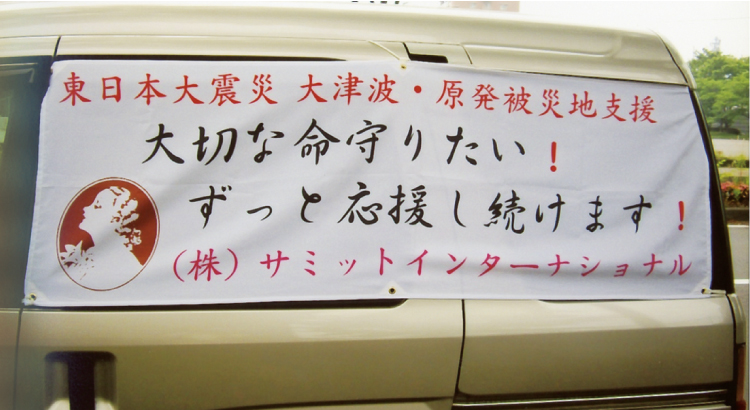 東日本大震災 大津波・原発被災地支援
大切な命守りたい！
ずっと応援し続けます！
（株）サミットインターナショナル